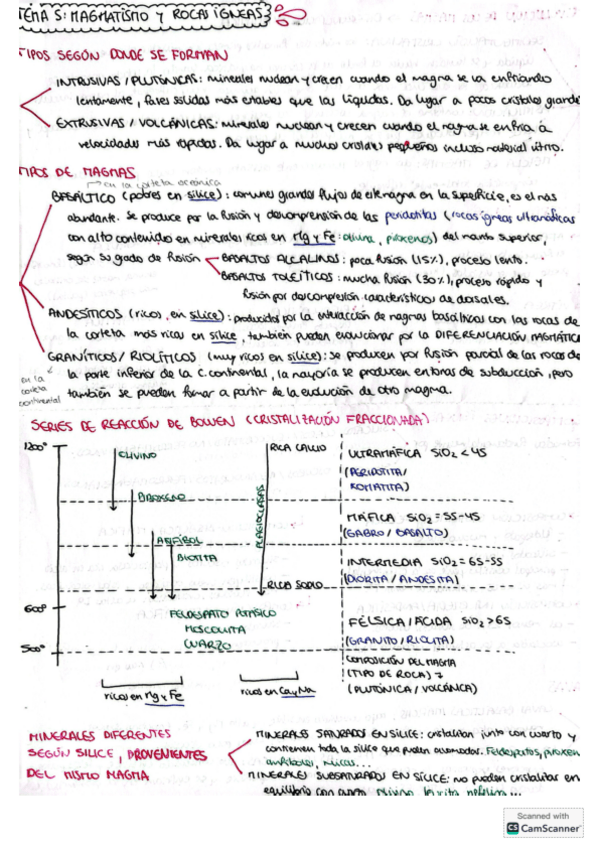 TEMA 5: MAGMATISMO Y ROCAS IGNEAS
TIPOS SEGÚN DONDE SE FORMAN
INTRUSIVAS / PLUTÓNICAS: minerales nuclean y crecen cuando el magma se va enfriando
lentamente, fases sólidas más estables que las líquidas. Da lugar a pocos cristales grandes
EXTRUSIVAS / VOLCÁNICAS: minerales nuclean y crecen cuando el magma se enfria a
velocidades más rápidas. Da lugar a muchos cristales pequeños incluso material vítreo.
TIPOS DE MAGMAS
en la corteza oceánica
BASÁLTICO (pobres en sílice): comunes grandes flujos de este magma en la superficie, es el más
abundante. Se produce por la fusión y descompresión de las peridotitas (rocas ígneas ultramáficas
con alto contenido en minerales ricos en Mg y Fe: olivino, piroxenos) del manto superior,
según su grado de fusión
BASALTOS ALCALINOS: poca fusión (15%), proceso lento.
BASALTOS TOLEÍTICOS: mucha fusión (30%), proceso rápido y
fusión por descompresión característicos de dorsales.
ANDESÍTICOS (ricos en sílice): producidos por la interacción de magmas basálticos con las rocas de
la corteza más ricas en sílice, también pueden evolucionar por la DIFERENCIACIÓN MAGMÁTICA
GRANÍTICOS / RIOLÍTICOS (muy ricos en sílice): se producen por fusión parcial de las rocas de
en la corteza continental
la parte inferior de la c. continental, la mayoría se producen en zonas de subducción, pero
también se pueden formar a partir de la evolución de otro magma.
SERIES DE REACCIÓN DE BOWEN (CRISTALIZACIÓN FRACCIONADA)
1200°
OLIVINO
RICA CALCIO
ULTRAMÁFICA SiO2 < 45
(PERIDOTITA/
KOMATITA)
PIROXENO
PLAGIOCLASAS
MÁFICA SiO2 = 55-45
(GABRO / BASALTO)
ANFÍBOL
BIOTITA
INTERMEDIA SiO2 = 65-55
(DIORITA / ANDESITA)
RICA SODIO
600°
FELDESPATO POTÁSICO
MOSCOVITA
CUARZO
FÉLSICA / ÁCIDA SiO2 > 65
(GRANITO / RIOLITA)
500°
COMPOSICIÓN DEL MAGMA
(TIPO DE ROCA)
(PLUTÓNICA / VOLCÁNICA)
ricos en Mg y Fe
ricos en Ca y Na
MINERALES DIFERENTES
SEGÚN SILICE, PROVENIENTES
DEL MISMO MAGMA
MINERALES SATURADOS EN SÍLICE: cristalizan junto con cuarzo y
contienen toda la sílice que pueden acomodar. Feldespatos, piroxenos
anfíboles, micas...
MINERALES SUBSATURADOS EN SÍLICE: no pueden cristalizar en
equilibrio con cuarzo olivino, leucita, nefelina...
Scanned with
CS CamScanner